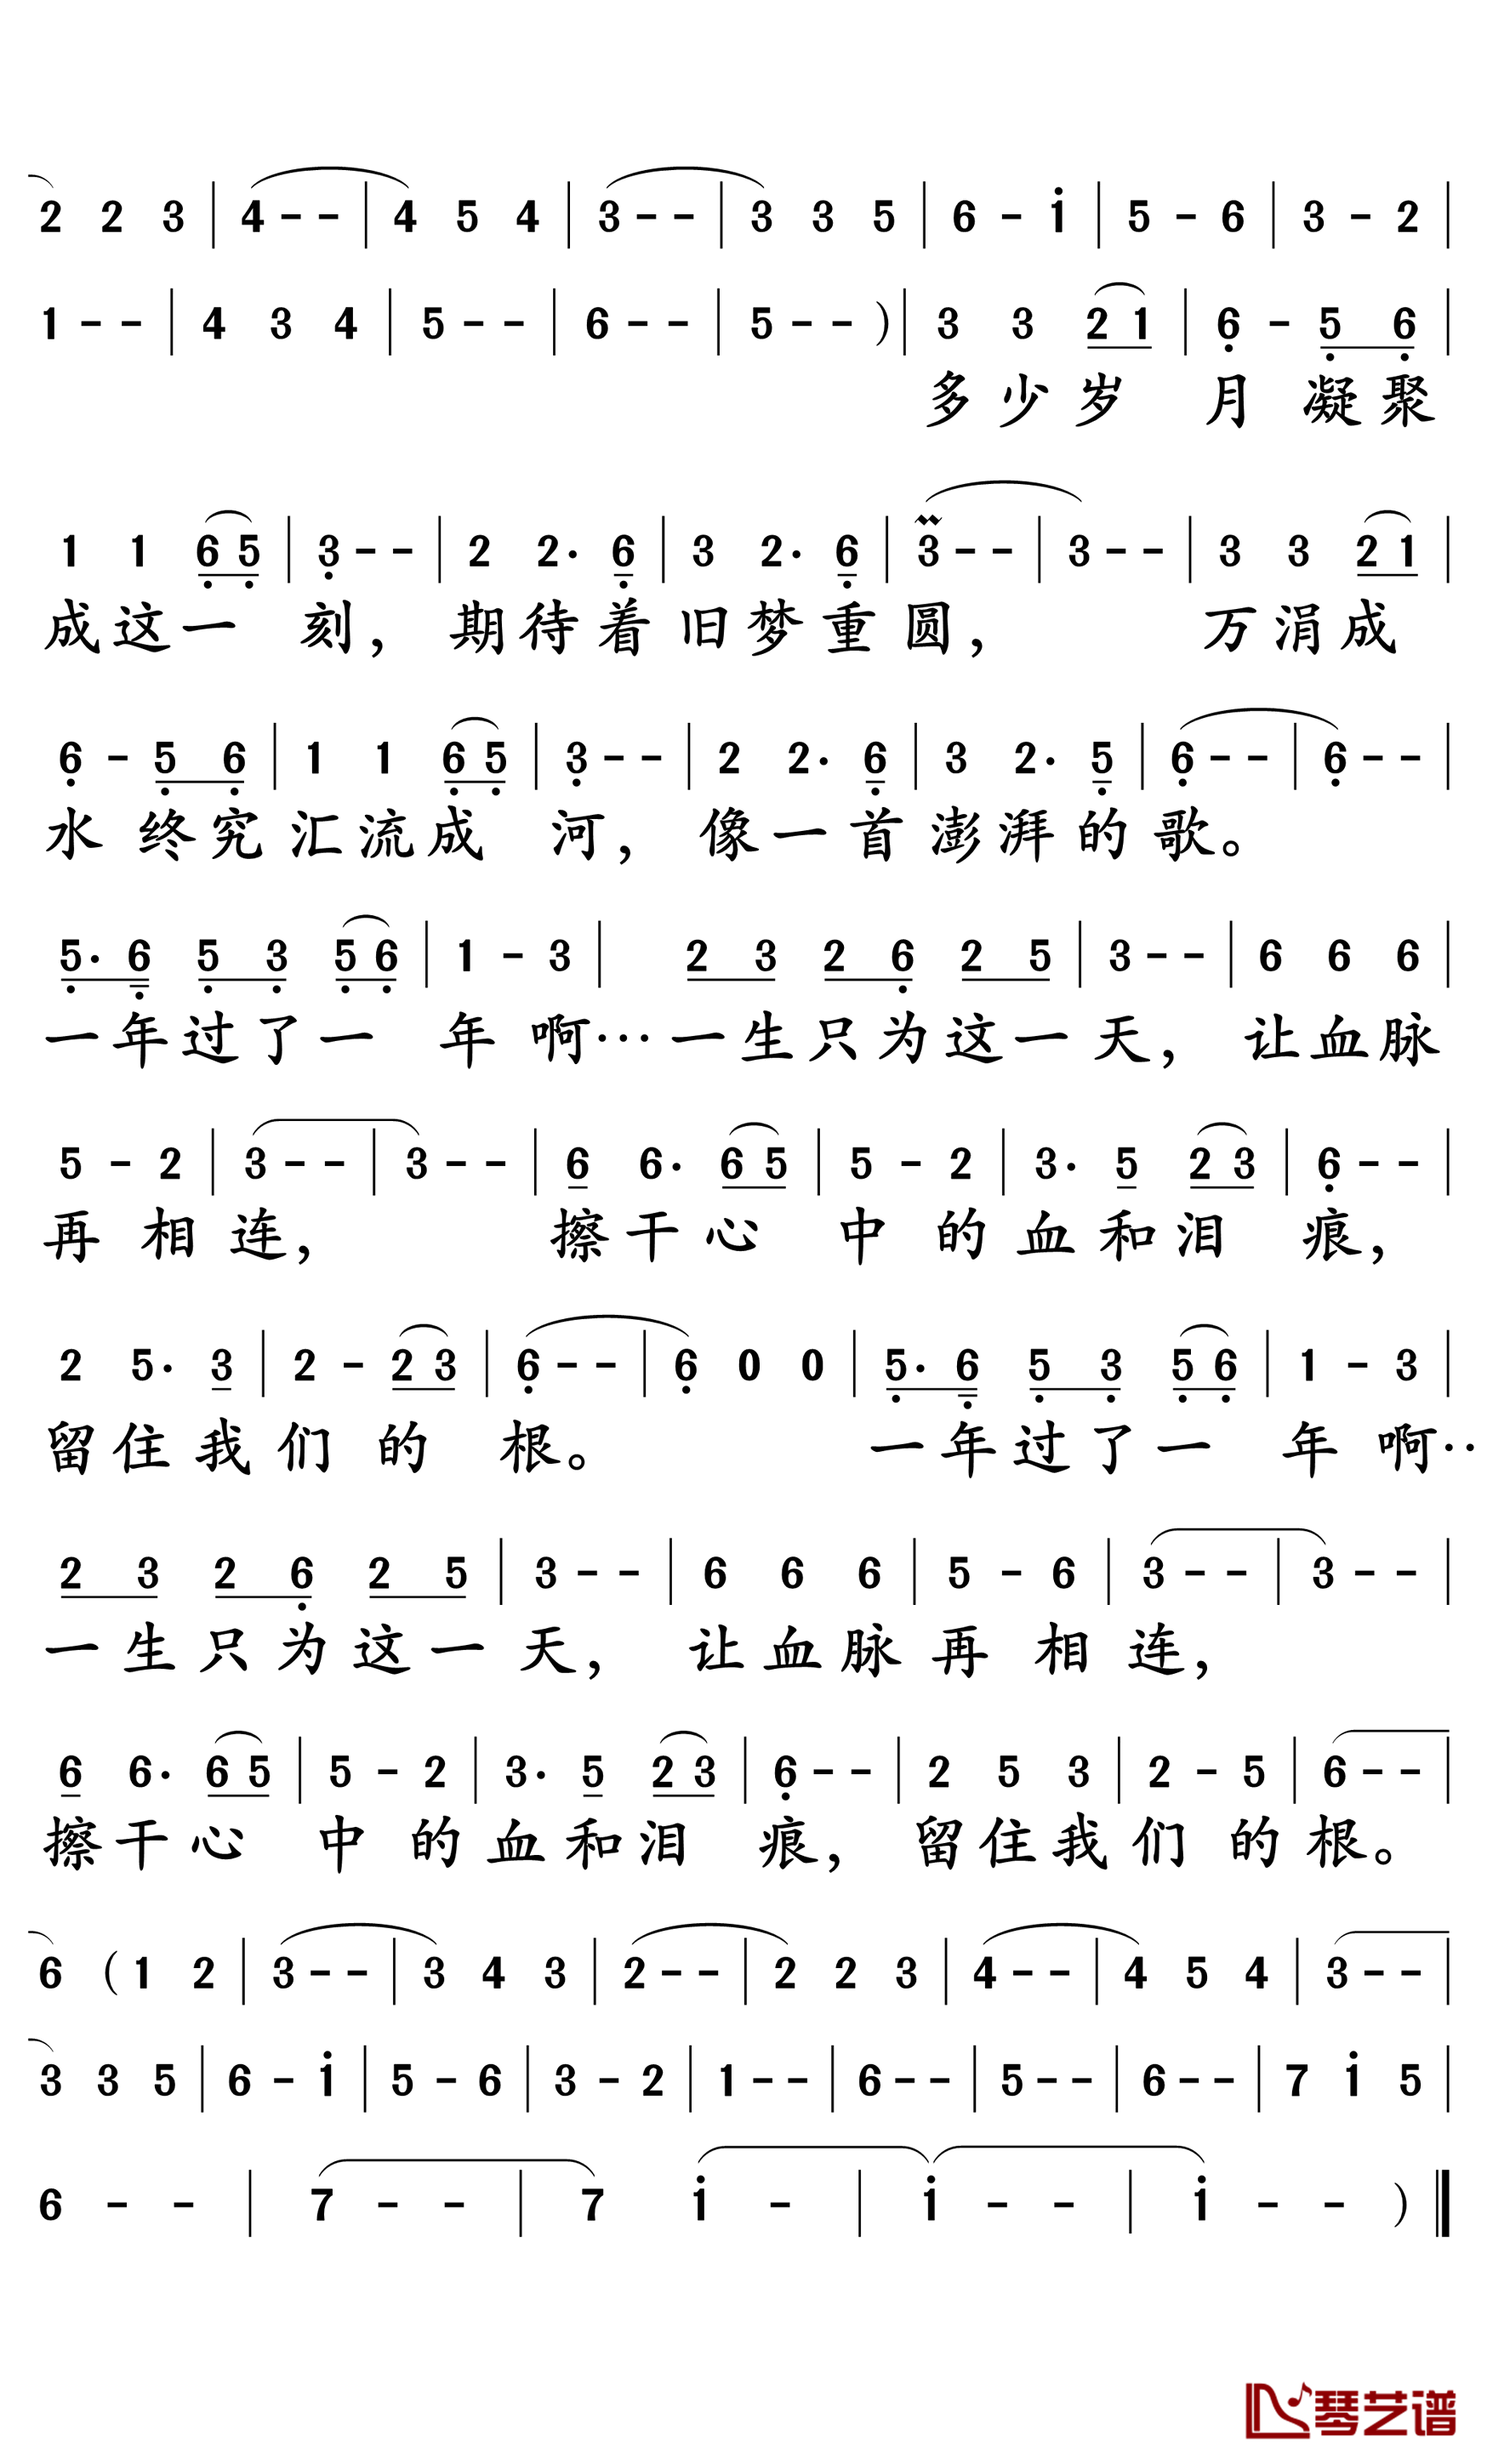 2 2 3 | 4 - - | 4 5 4 | 3 - - | 3 3 5 | 6 - i | 5 - 6 | 3 - 2 |
1 - - | 4 3 4 | 5 - - | 6 - - | 5 - - ) | 3 3 2 1 | 6 - 5 6 |
多少岁 月 凝聚
1 1 6 5 | 3 - - | 2 2· 6 | 3 2· 6 | 3 - - | 3 - - | 3 3 2 1 |
成这一 刻，期待着旧梦重圆， 万涓成
6 - 5 6 | 1 1 6 5 | 3 - - | 2 2· 6 | 3 2· 5 | 6 - - | 6 - - |
水 终究汇流成 河， 像一首澎湃的歌。
5· 6 5 3 5 6 | 1 - 3 | 2 3 2 6 2 5 | 3 - - | 6 6 6 |
一年过了一 年 啊···一生只为这一天， 让血脉
5 - 2 | 3 - - | 3 - - | 6 6· 6 5 | 5 - 2 | 3· 5 2 3 | 6 - - |
再 相 连， 擦干心 中 的血和泪 痕，
2 5· 3 | 2 - 2 3 | 6 - - | 6 0 0 | 5· 6 5 3 5 6 | 1 - 3 |
留住我们 的 根。 一年过了一 年 啊··
2 3 2 6 2 5 | 3 - - | 6 6 6 | 5 - 6 | 3 - - | 3 - - |
一生只为这一天， 让血脉再 相 连，
6 6· 6 5 | 5 - 2 | 3· 5 2 3 | 6 - - | 2 5 3 | 2 - 5 | 6 - - |
擦干心 中 的血和泪 痕， 留住我们 的根。
6 ( 1 2 | 3 - - | 3 4 3 | 2 - - | 2 2 3 | 4 - - | 4 5 4 | 3 - - |
3 3 5 | 6 - i | 5 - 6 | 3 - 2 | 1 - - | 6 - - | 5 - - | 6 - - | 7 i 5 |
6 - - | 7 - - | 7 i - | i - - | i - - ) ‖
琴艺谱